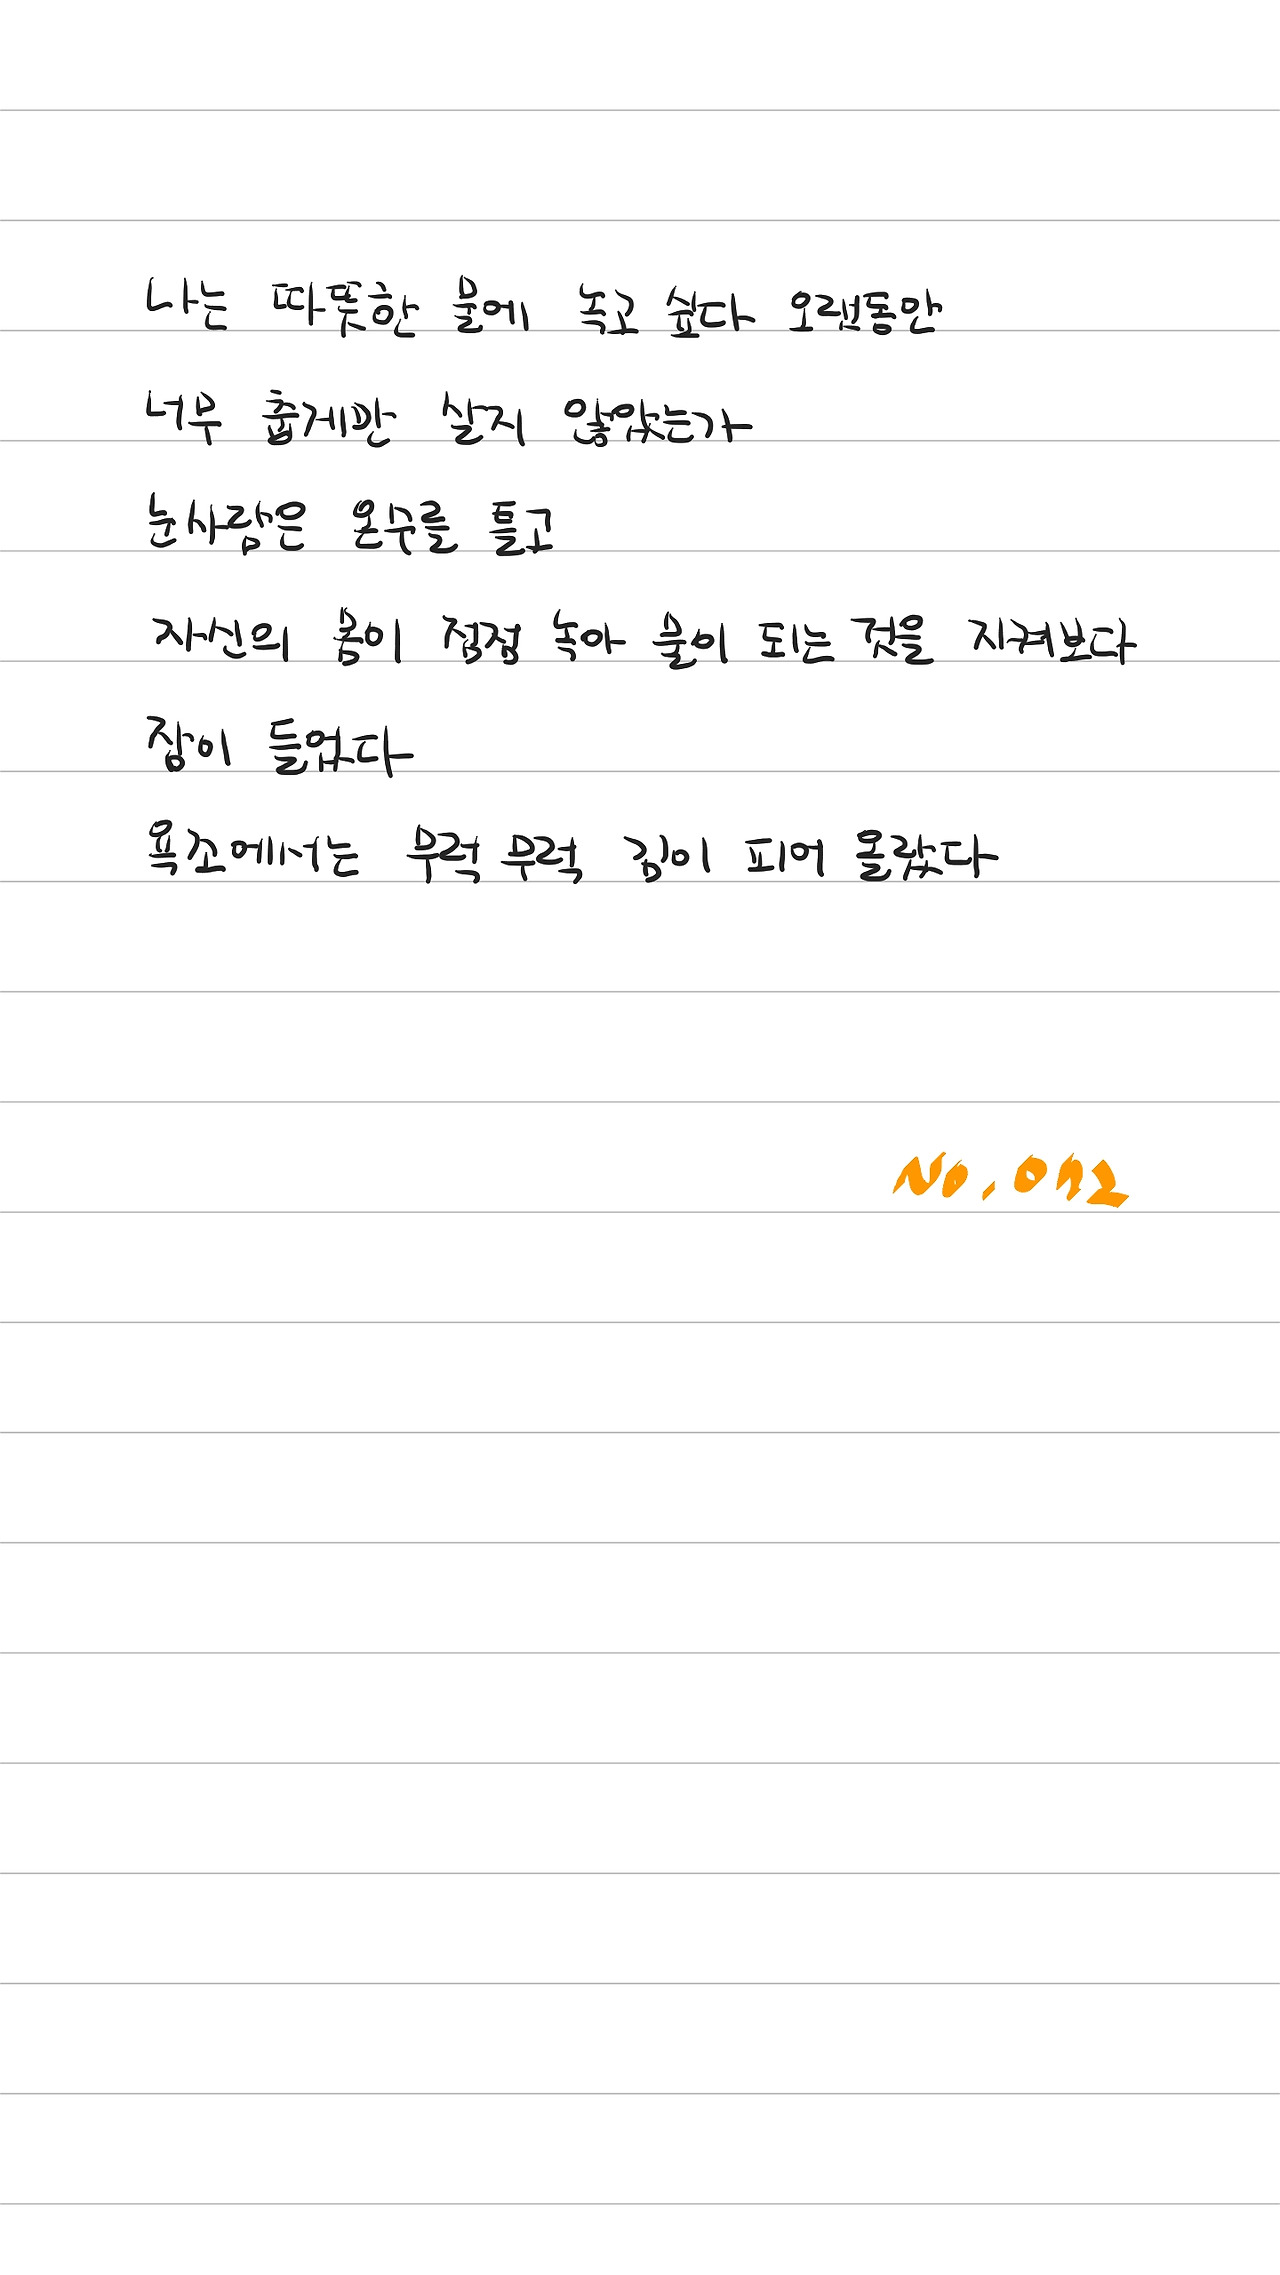 나는 따뜻한 물에 녹고 싶다 오랫동안
너무 춥게만 살지 않았는가
눈사람은 온수를 틀고
자신의 몸이 점점 녹아 물이 되는 것을 지켜보다
잠이 들었다
욕조에서는 무럭무럭 김이 피어 올랐다
No.072